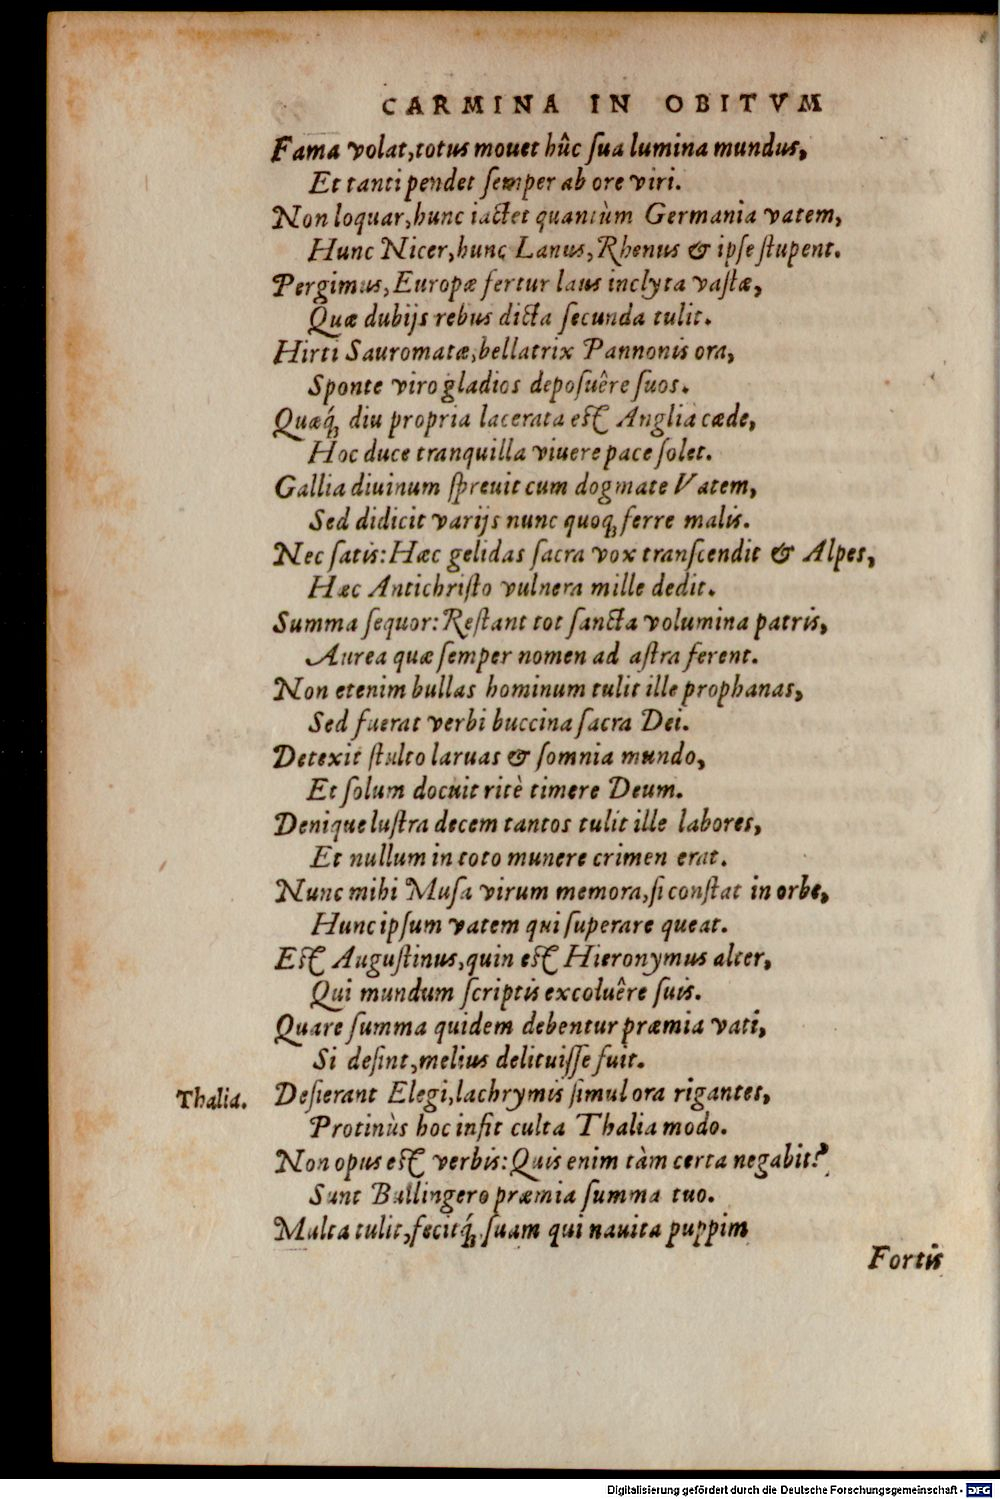 CARMINA IN OBITVM
Fama volat, totus mouet hûc ſua lumina mundus,
Et tanti pendet ſemper ab ore viri.
Non loquar, hunc iactet quantùm Germania vatem,
Hunc Nicer, hunc Lanus, Rhenus & ipſe ſtupent.
Pergimus, Europæ fertur laus inclyta vaſtæ,
Quæ dubijs rebus dicta ſecunda tulit.
Hirti Sauromatæ, bellatrix Pannonis ora,
Sponte viro gladios depoſuêre ſuos.
Quæq́; diu propria lacerata eſt Anglia cæde,
Hoc duce tranquilla viuere pace ſolet.
Gallia diuinum ſpreuit cum dogmate Vatem,
Sed didicit varijs nunc quoq; ferre malis.
Nec ſatis: Hæc gelidas ſacra vox tranſcendit & Alpes,
Hæc Antichriſto vulnera mille dedit.
Summa ſequor: Reſtant tot ſancta volumina patris,
Aurea quæ ſemper nomen ad aſtra ferent.
Non etenim bullas hominum tulit ille prophanas,
Sed fuerat verbi buccina ſacra Dei.
Detexit ſtulto laruas & ſomnia mundo,
Et ſolum docuit ritè timere Deum.
Denique luſtra decem tantos tulit ille labores,
Et nullum in toto munere crimen erat.
Nunc mihi Muſa virum memora, ſi conſtat in orbe,
Hunc ipſum vatem qui ſuperare queat.
Eſt Auguſtinus, quin eſt Hieronymus alter,
Qui mundum ſcriptis excoluêre ſuis.
Quare ſumma quidem debentur præmia vati,
Si deſint, melius delituiſſe fuit.
Thalia. Deſierant Elegi, lachrymis ſimul ora rigantes,
Protinùs hoc infit culta Thalia modo.
Non opus eſt verbis: Quis enim tàm certa negabit?
Sunt Bullingero præmia ſumma tuo.
Multa tulit, fecitq́; ſuam qui nauita puppim
Fortis
Digitalisierung gefördert durch die Deutsche Forschungsgemeinschaft - DFG